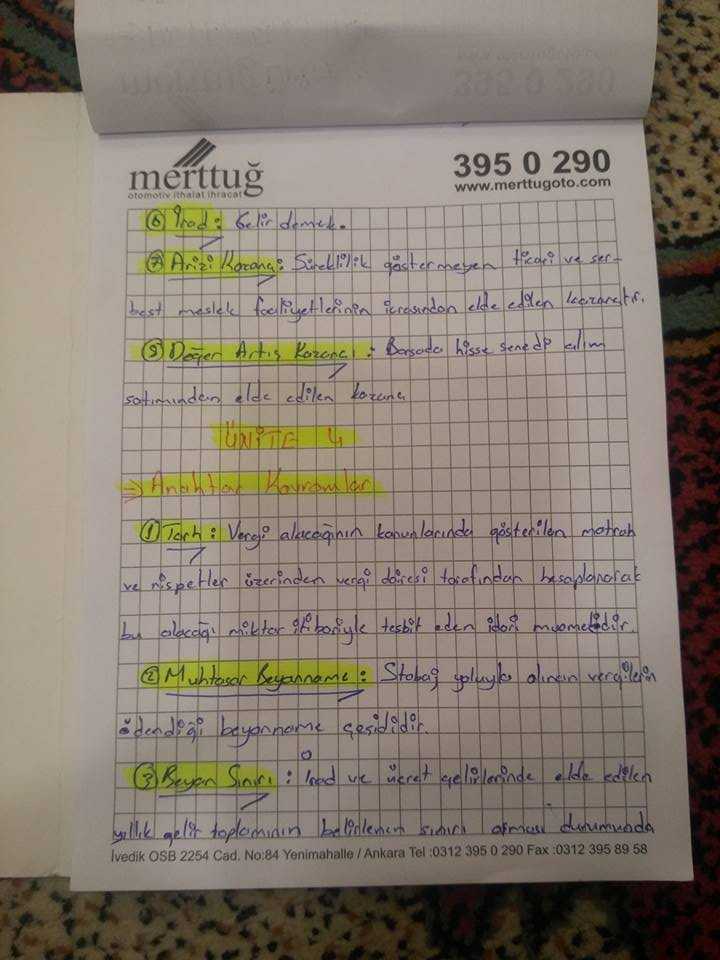 merttuğ
otomotiv ithalat ihracat
395 0 290
www.merttugoto.com
⑥ İrad : Gelir demek.
⑦ Arızi Kazanç : Süreklilik göstermeyen ticari ve ser-
best meslek faaliyetlerinin icrasından elde edilen kazançtır.
Değer Artış Kazancı : Borsada hisse senedi alım
satımından elde edilen kazanç
ÜNİTE 4
⇒ Anahtar Kavramlar
① Tarh : Vergi alacağının kanunlarında gösterilen matrah
ve nispetler üzerinden vergi dairesi tarafından hesaplanarak
bu alacağı miktar itibariyle tesbit eden idari muameledir.
② Muhtasar Beyanname : Stobaj yoluyla alınan vergilerin
ödendiği beyanname çeşididir.
③ Beyan Sınırı : İrad ve ücret gelirlerinde elde edilen
yıllık gelir toplamının belirlenen sınırı aşması durumunda
İvedik OSB 2254 Cad. No:84 Yenimahalle / Ankara Tel :0312 395 0 290 Fax :0312 395 89 58